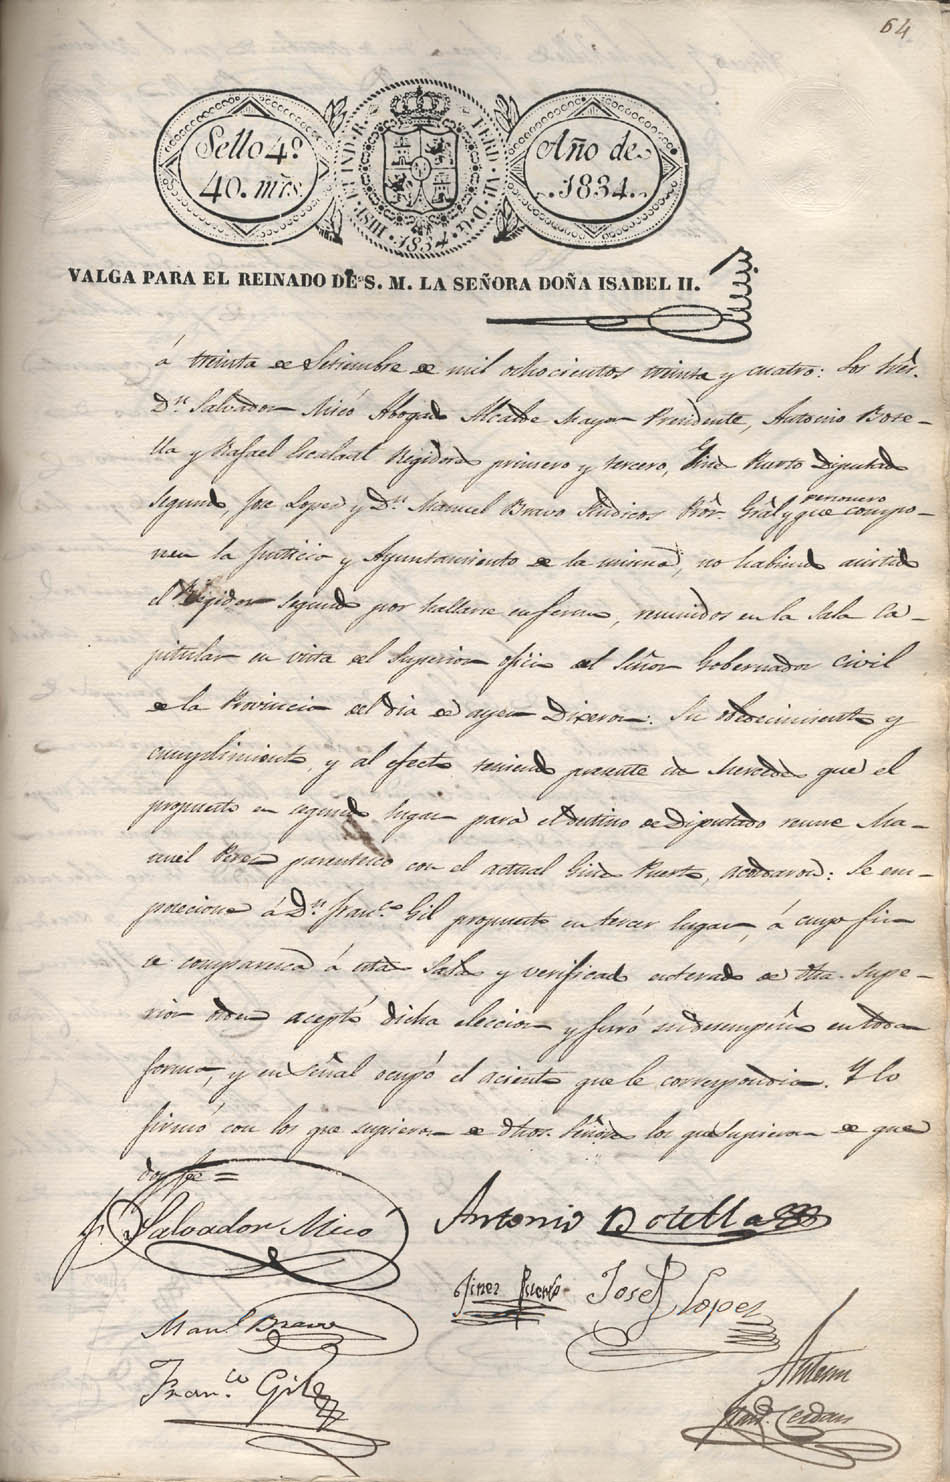 64
Sello 4º
40. mrs.
HISP. ET IND. R. FERD. VII. D. G. 1834
Año de
1834.
VALGA PARA EL REINADO DE S. M. LA SEÑORA DOÑA ISABEL II.
á treinta de Setiembre de mil ochocientos treinta y cuatro: Los Sres.
Dn. Salvador Micó Abogado Alcalde Mayor Presidente, Antonio Bote-
lla y Rafael Regidores primero y tercero, Giné Puerto Diputado
segundo, José Lopez y Dn. Manuel Bravo Síndicos Pror. Gral y
personero
que compo-
nen la Justicia y Ayuntamiento de la misma, no habiendo asistido
el Regidor segundo por hallarse enfermo, reunidos en la Sala Ca-
pitular en vista del Superior oficio del Señor Gobernador Civil
de la Provincia del dia de ayer Dixeron: Su obedecimiento y
cumplimiento, y al efecto teniendo presente que el
propuesto en segundo lugar para el destino de Diputado Ma-
nuel Perez parentesco con el actual Giné Puerto, acordaron: Se em-
posecione á Dn. Franco. Gil propuesto en tercer lugar, á cuyo fin
comparezca á esta Sala y verificado enterado de dha. supe-
rior orden aceptó dicha eleccion y juró su desempeño en toda
forma, y en señal ocupó el aciento que le correspondia. Y lo
firmó con los que supieron de dhos. Señores los que supieron de que
doy fe =
Salvador Micó
Antonio Botella
Jines Puerto
Josef Lopez
Manl. Bravo
Franco. Gil
Antem
Cerdan